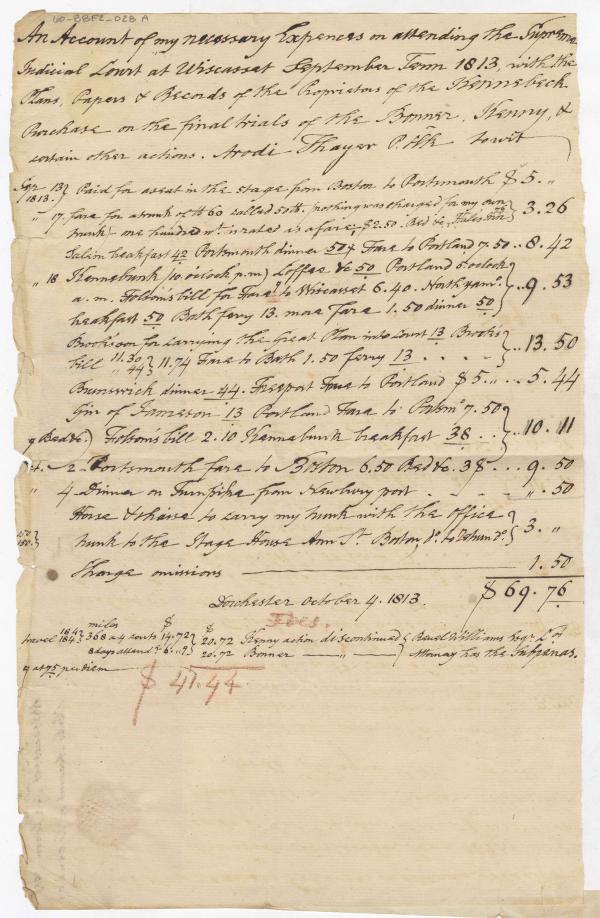 60-88F2-028 A
An Account of my necessary Expences on attending the Supreme
Judicial Court at Wiscasset September Term 1813, with the
Plans, Papers & Records of the Proprietors of the Kennebeck
Purchase on the final trials of the Bonner, Kenny, &
certain other actions. Arodi Thayer P. Clk to wit
Sep 13 1813. Paid for a seat in the stage from Boston to Portsmouth $ 5. "
" 17. fare for a trunk of lb 60 called 50 lb. nothing was charged for my own
trunk one hundred wt. is rated as a fare, $2.50. Bed &c 3.26
Salem breakfast 42 Portsmouth dinner 50 & Fare to Portland 7.50 8.42
" 18 Kennebunk 10 oclock p.m. Coffee &c 50 Portland 6 oclock
a.m. Folsom's bill for Fare to Wiscasset 6.40. North yarmo. 9.53
breakfast 50 Bath ferry 13. more Fare 1.50 dinner 50
Brookson for carrying the Great Plan into Court 13 Brook's 13.50
bill 11.30 " 44 11.74 Fare to Bath 1.50 ferry 13
Brunswick dinner 44. Freeport Fare to Portland $ 5. " 5.44
Gin of Jameson 13 Portland Fare to Portsmo 7.50 10.11
Bed &c. Folsom's bill 2.10 Kennebunk breakfast 38
Oct. 2 Portsmouth fare to Boston 6.50 Bed &c. 3 9.50
" 4 Dinner on Turnpike from Newburyport " .50
Horse & chaise to carry my trunk with the office 3. "
trunk to the Stage House Ann St. Boston, do. to return do.
150 150
Charge omissions 1.50
$ 69.76
Dorchester October 4. 1813.
Fees.
travel 184 184 miles 368 a 4 cents 14.72 $ 20.72 Kenny action discontinued Reuel Williams Esqr.
8 days attend. 6. " 20.72 Bonner " Attorney has the Subpœnas.
at 75 per diem
$ 41.44